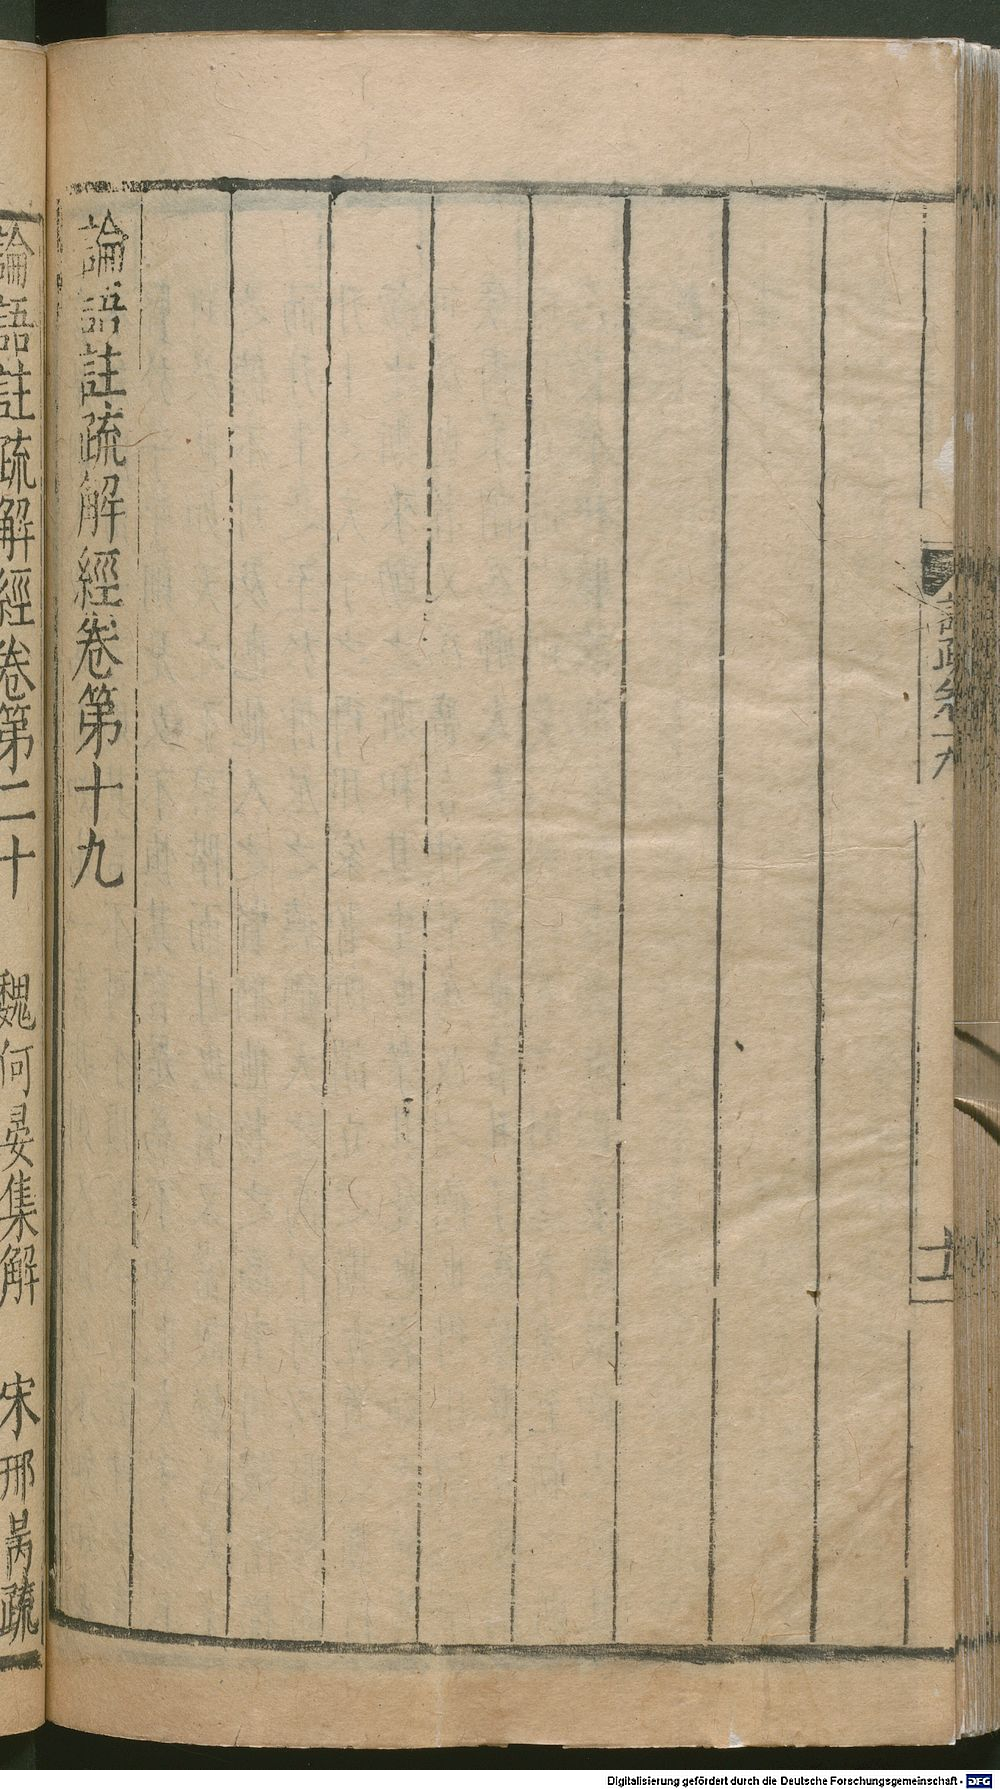 論語註疏解經卷第十九
論語註疏解經卷第二十　魏何晏集解　宋邢昺疏
Digitalisierung gefördert durch die Deutsche Forschungsgemeinschaft - DFG